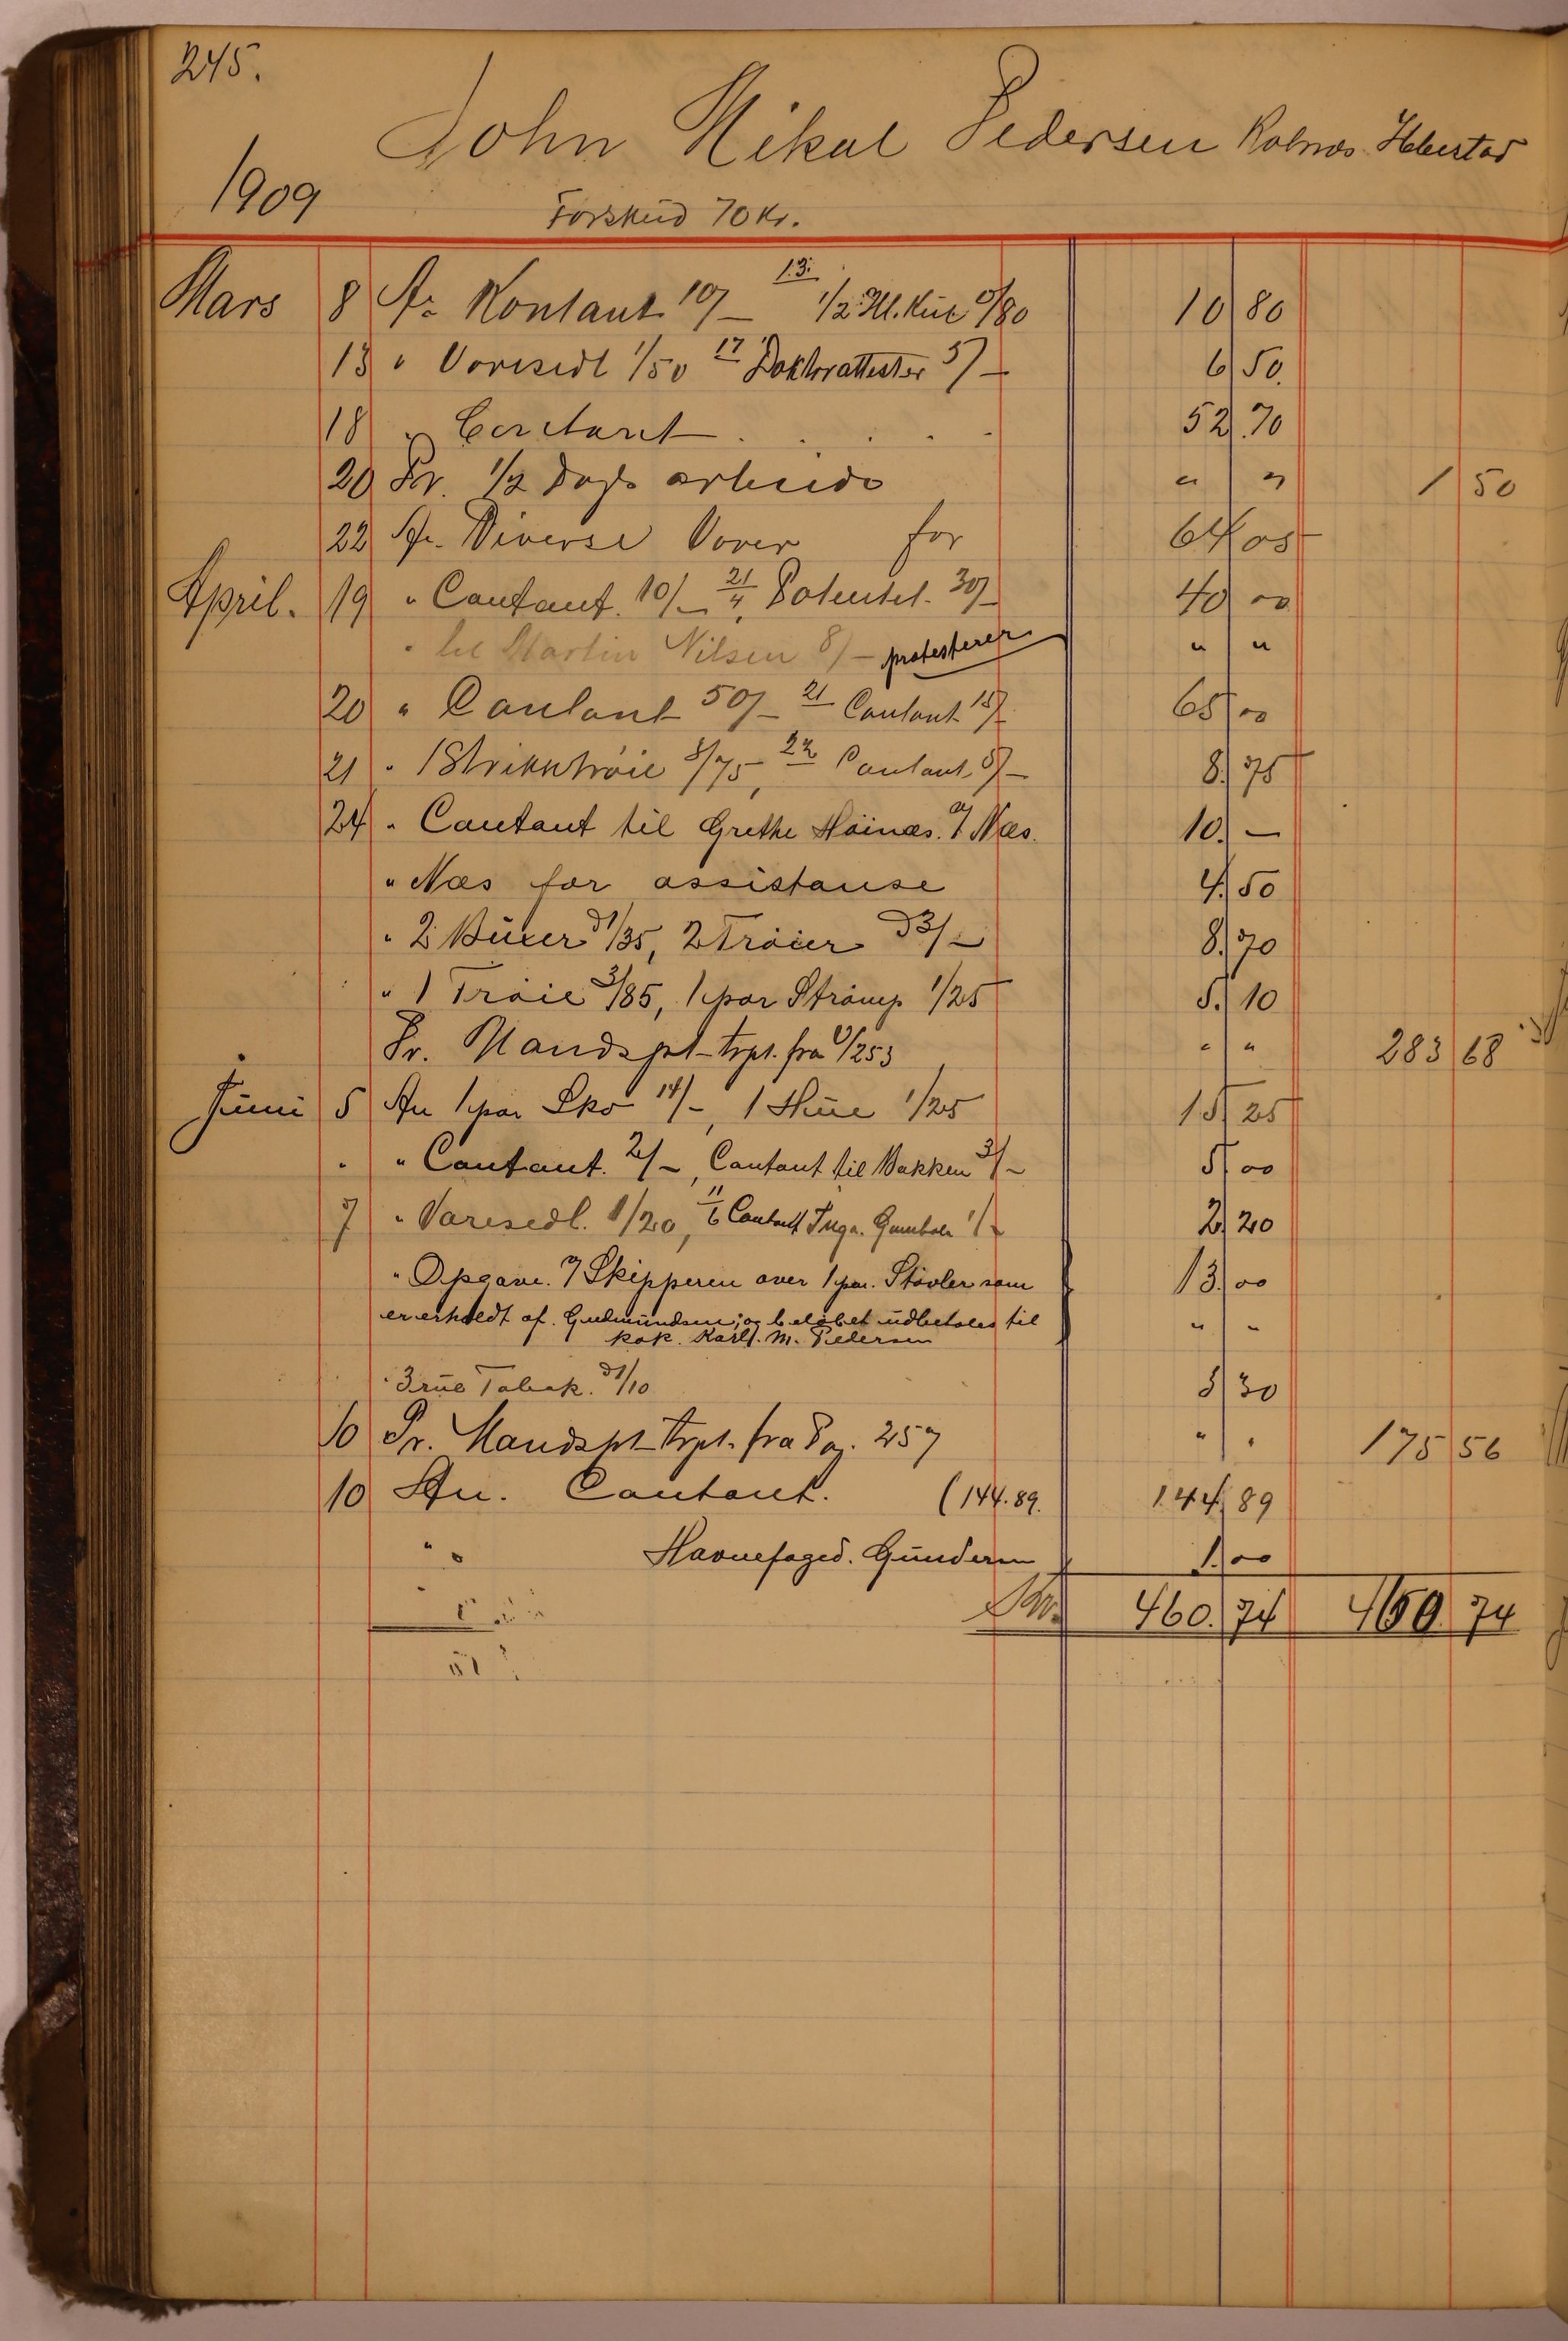 245.
John Nikal Pedersen
1909
Forskud 70 Kr.
Mars 8 An Kontant 10/- 13. 1/2 Hl. Kul 0/80 10 80
13 " Varesedl 1/50 17 Doktorattester 5/- 6 50.
18 " Contant . . . . 52.70
20 Pr. 1/2 Dags arbeide " " 1 50
22 An Diverse Varer for 64 05
April. 19 " Contant. 10/- 21/4, 30/- 40 00
" til Martin Nilsen 8/- protesterer " "
20 " Contant 50/- 21 Contant 15/- 65 00
21 " 1 Strikktröie 8/75, 22 Contant 8. 75
24 " Contant til Grethe Höinæs. af Næs. 10. -
" Næs for assistanse 4. 50
" 2 Buxer a 1/35, 2 Tröier a 3/- 8. 70
" 1 Tröie 3/85, 1 par Strömp 1/25 5. 10
Pr. Mandspt-trpt. fra 253 " " 283 68
Juni 5 An 1 par Sko 14/-, 1 Hue 1/25 15 25
" " Contant. 2/-, Contant til Bakken 3/- 5 00
7 " Varesedl. 1/20, 11/6 Contant Inga 1/- 2 20
" Opgave. af Skipperen over 1 par. Stövler som 13. 00
er erholdt af. Gudmundsen; og belöbet udbetales til " "
kok. Karl. M. Pedersen
" 3 rul Tobak. a 1/10 3 30
10 Pr. Mandspt-trpt. fra Pag. 257 " " 175 56
10 An. Contant. (144.89. 144 89
" " Havnefoged. Gundersen 1. 00
Kr. 460. 74 460. 74